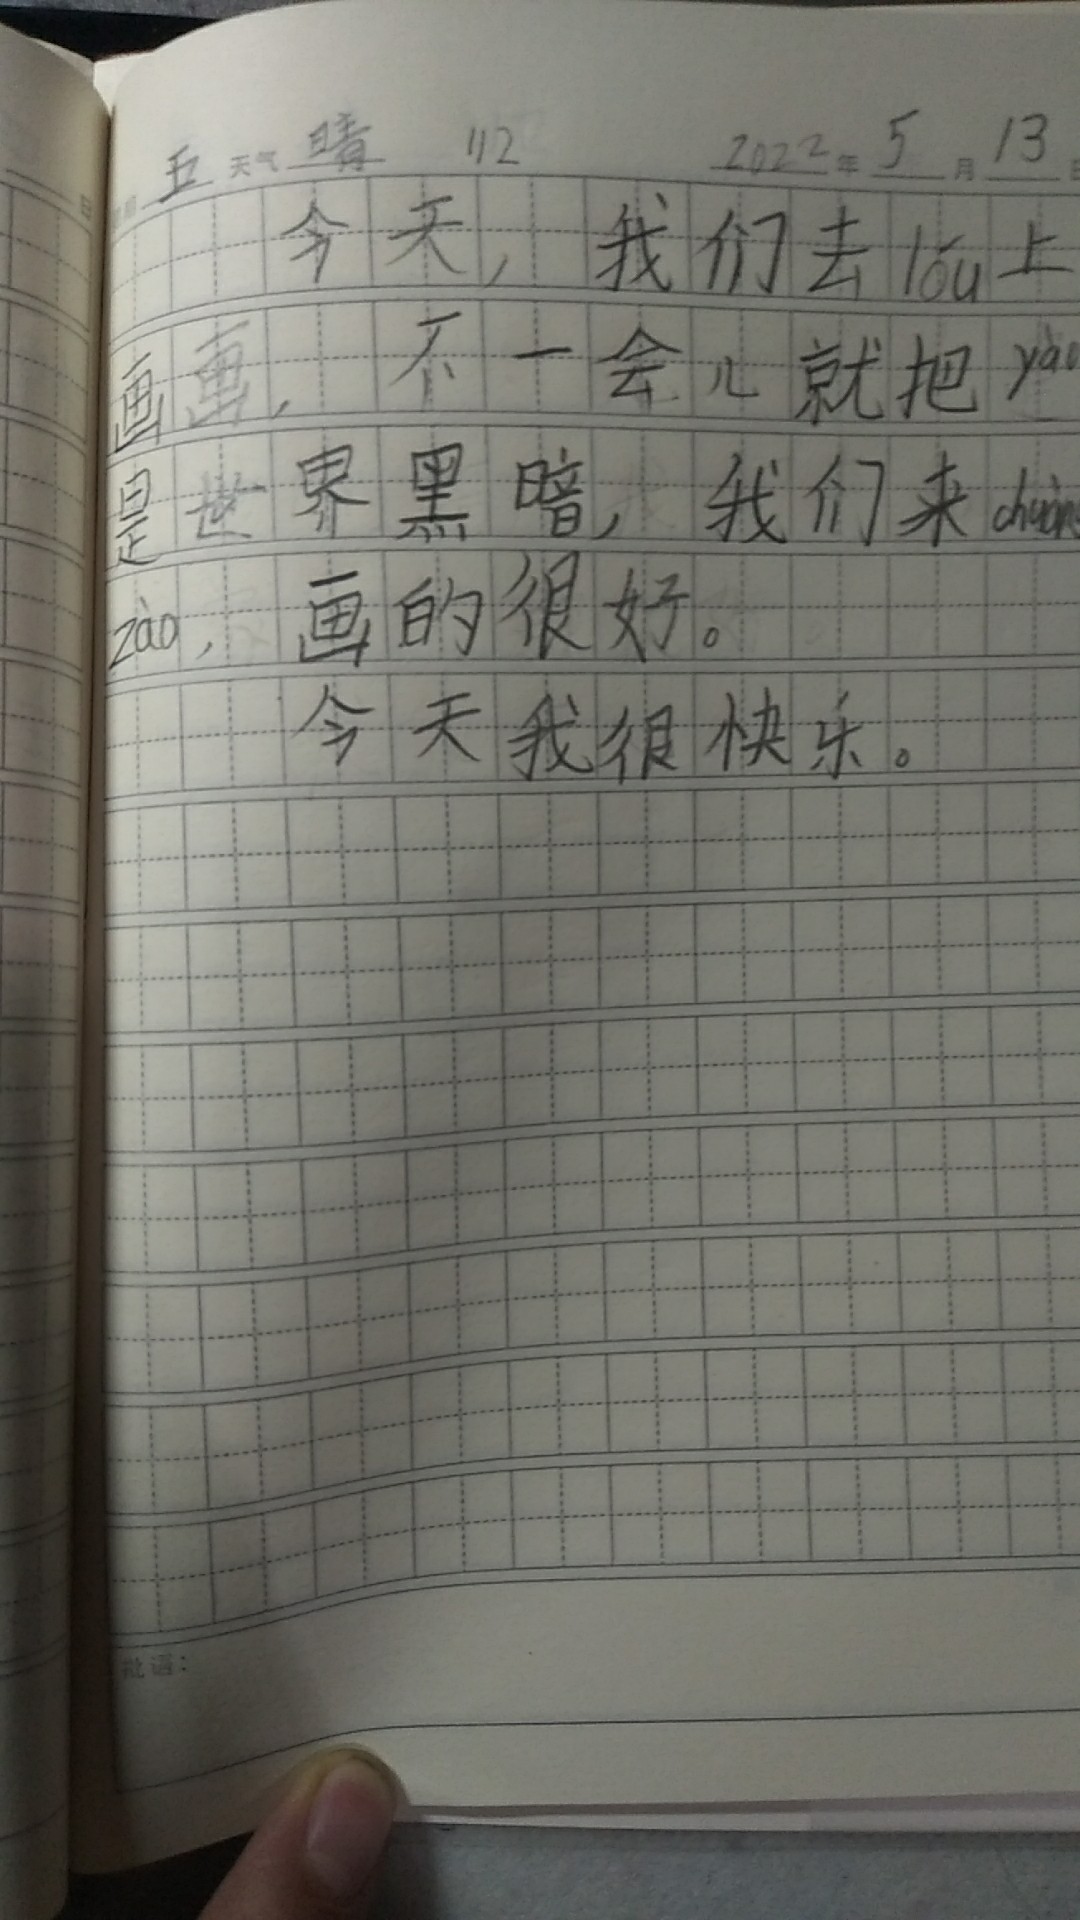 五 天气 晴 112 2022 年 5 月 13
今天,我们去lóu上
画画,不一会儿就把yào
是世界黑暗,我们来chuàng
zào,画的很好。
今天我很快乐。
批语: